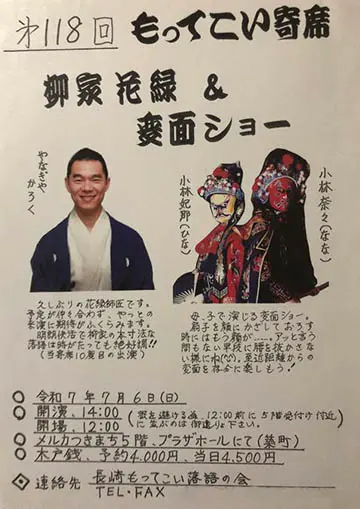 第118回 もってこい寄席
柳家 花緑 &
変面ショー
やなぎや
かろく
小林妃那(ひな)
小林奈々(なな)
久しぶりの花緑師匠です。
予定が仲々合わず、やっとの
来演に期待がふくらみます。
明朗快活で柳家の本寸法な
落語は時がたっても絶好調!!
(当寄席10度目の出演)
母、子で演じる変面ショー。
扇子を顔にかざしておろす
時にはもう顔が……。アッと言う
間もない早技に腰を抜かさな
い様にね(^^)。至近距離からの
変面を存分に楽しもう!
令和7年7月6日(日)
開演、14:00
開場、12:00
(密を避ける為、12:00前に5階受付け付近
に並ぶのは御遠りょ下さい。)
メルカつきまち5階、プラザホールにて(築町)
木戸銭、予約4.000円、当日4.500円
連絡先 長崎もってこい落語の会
TEL・FAX